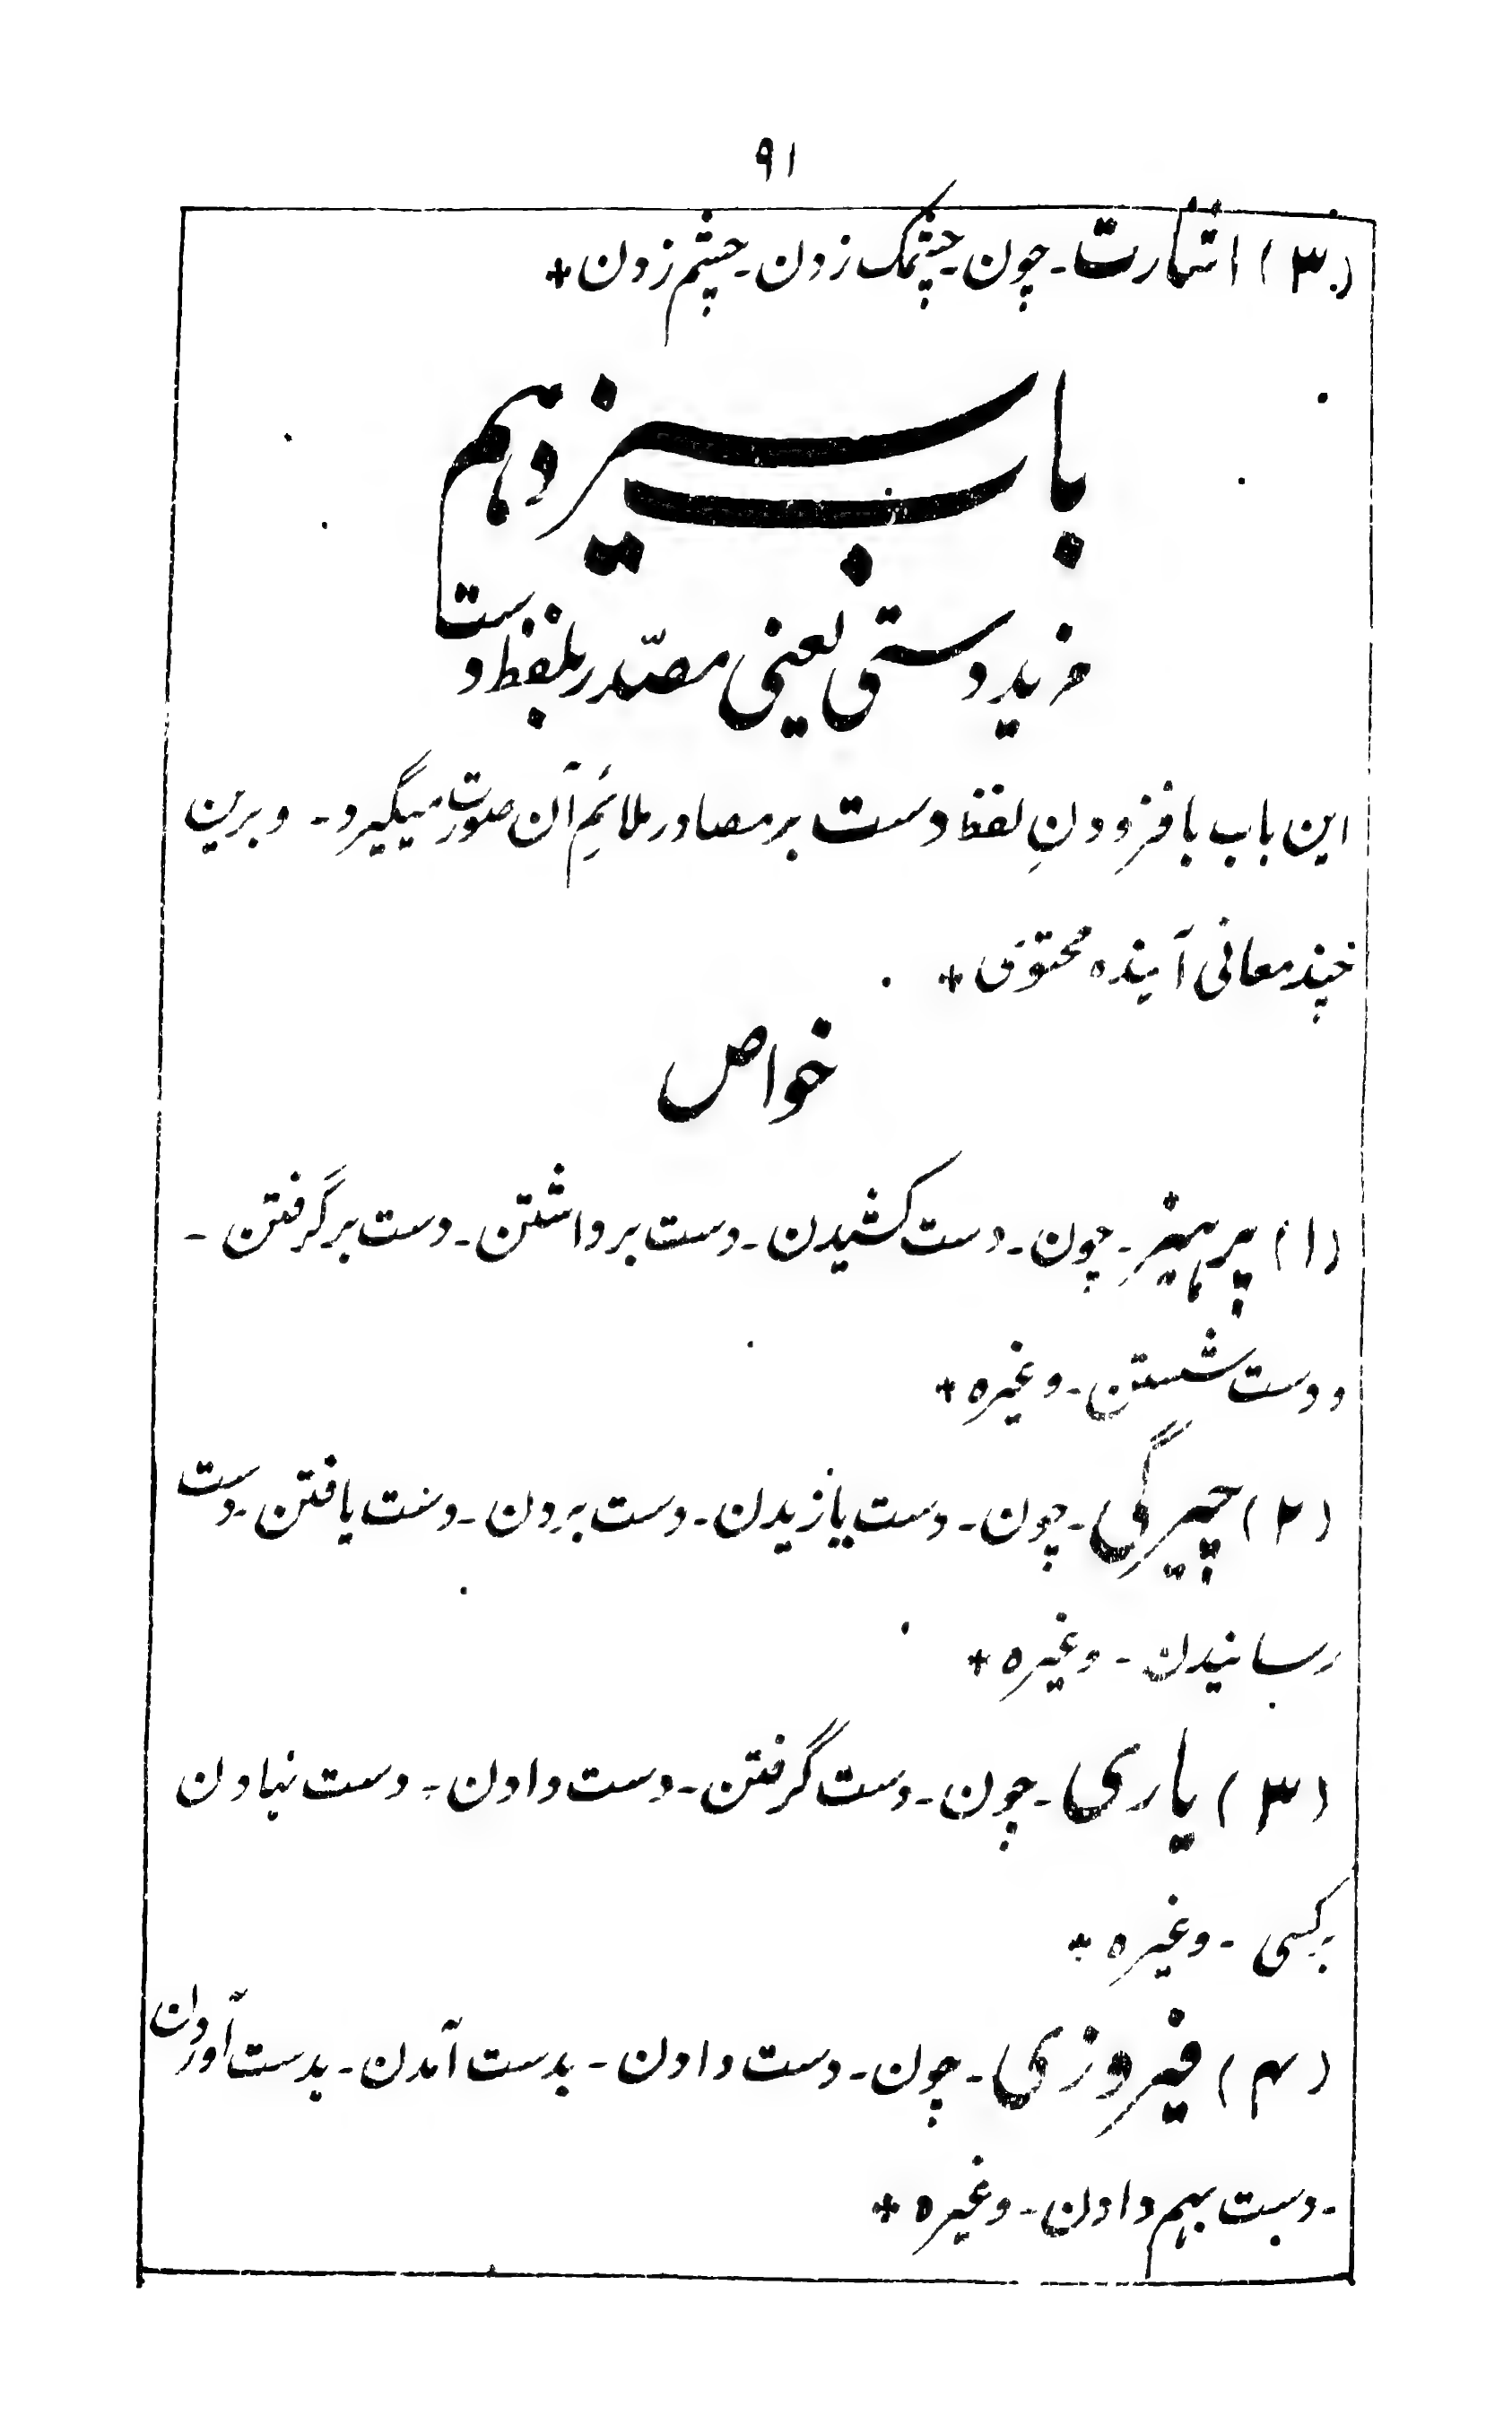 ۹۱
(۳) اشارت - چون - چشمک زدن - چشم زدن +
باب سیزدهم
مزید دستی یعنی مصدر بلفظ دست
این باب بافزودنِ لفظ دست بر مصادر ملائمِ آن صورت میگیرد - و برین
چند معانی آینده محتوی +
خواص
(۱) پرهیز - چون - دست کشیدن - دست برداشتن - دست برگرفتن -
و دست شستن - وغیره +
(۲) چیرگی - چون - دست یازیدن - دست بردن - دست یافتن - دست
رسانیدن - وغیره +
(۳) یاری - چون - دست گرفتن - دست دادن - دست نهادن
بر کسی - وغیره +
(۴) فیروزی - چون - دست دادن - بدست آمدن - بدست آوردن
- دست بهم دادن - وغیره +